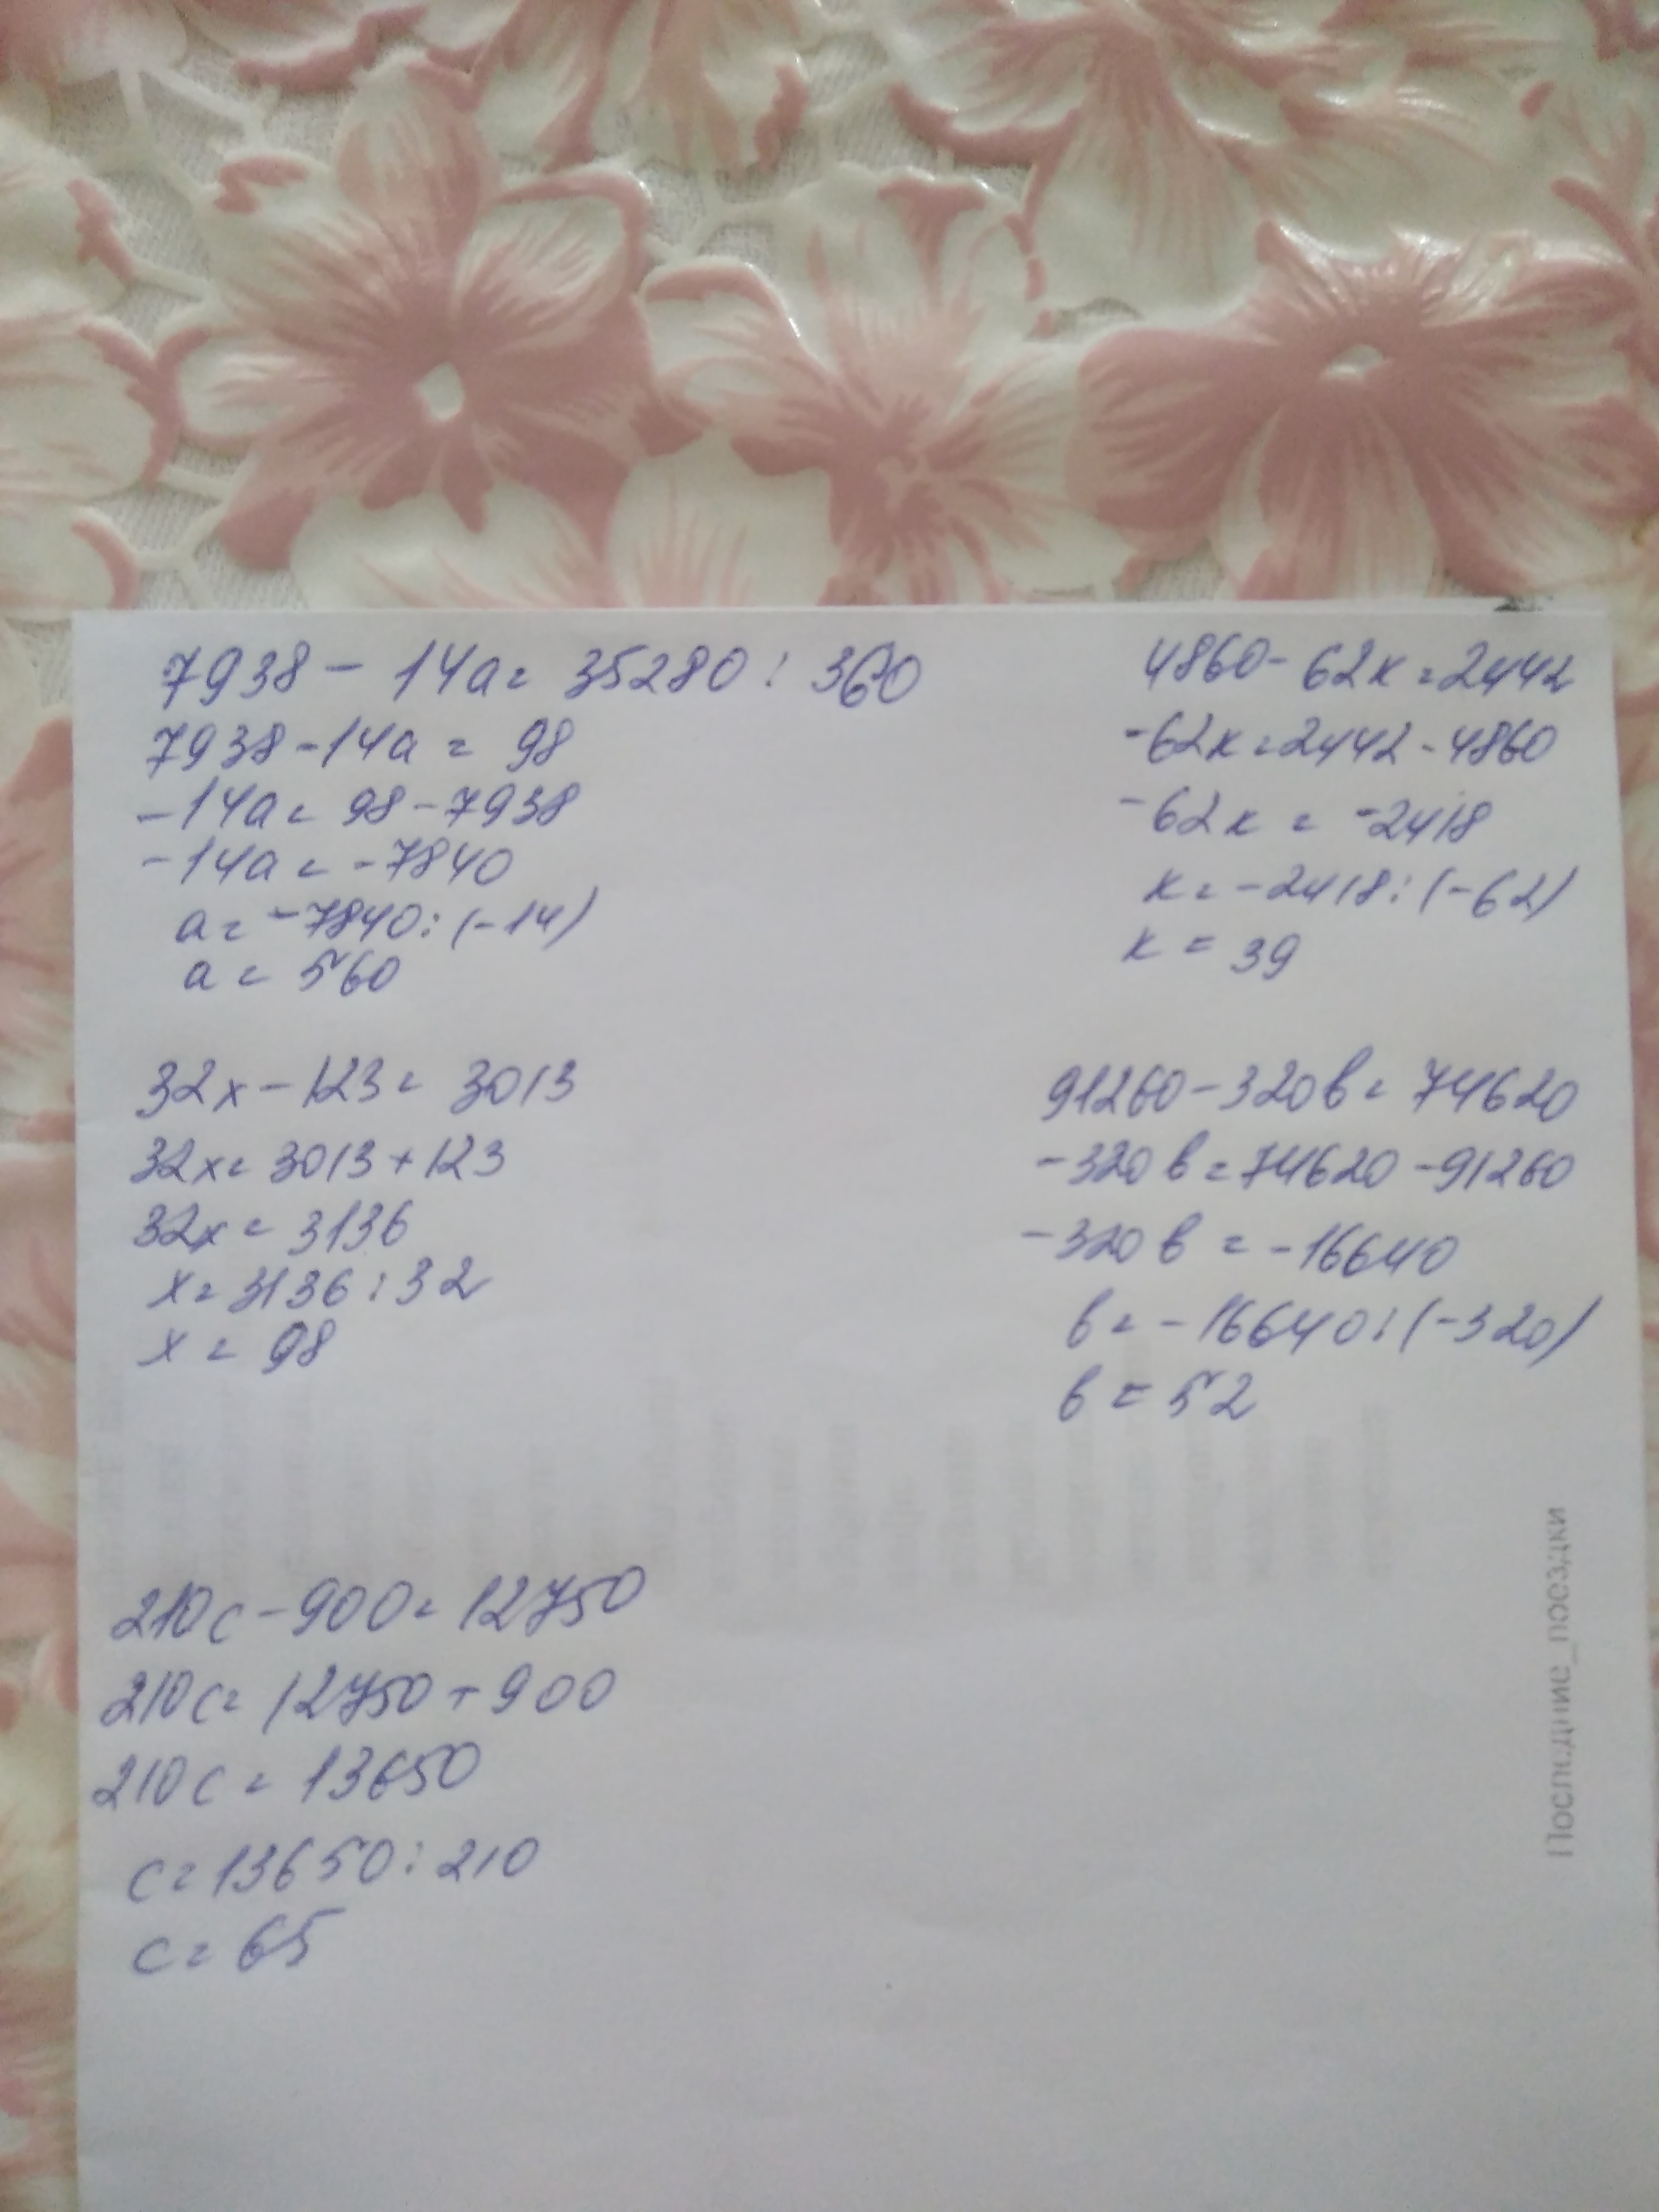 7938 - 14a = 35280 : 360
7938 - 14a = 98
- 14a = 98 - 7938
- 14a = - 7840
a = - 7840 : (-14)
a = 560
4860 - 62к = 2442
- 62к = 2442 - 4860
- 62к = - 2418
к = - 2418 : (-62)
к = 39
32x - 123 = 3013
32x = 3013 + 123
32x = 3136
x = 3136 : 32
x = 98
91260 - 320в = 74620
- 320в = 74620 - 91260
- 320в = - 16640
в = - 16640 : (-320)
в = 52
210c - 900 = 12750
210c = 12750 + 900
210c = 13650
c = 13650 : 210
c = 65
Последние_поездки